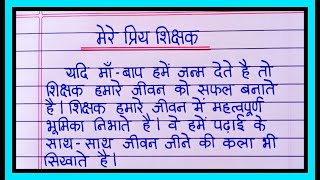 मेरे प्रिय शिक्षक
यदि माँ-बाप हमें जन्म देते है तो
शिक्षक हमारे जीवन को सफल बनाते
है। शिक्षक हमारे जीवन में महत्वपूर्ण
भूमिका निभाते है। वे हमें पढ़ाई के
साथ-साथ जीवन जीने की कला भी
सिखाते है।